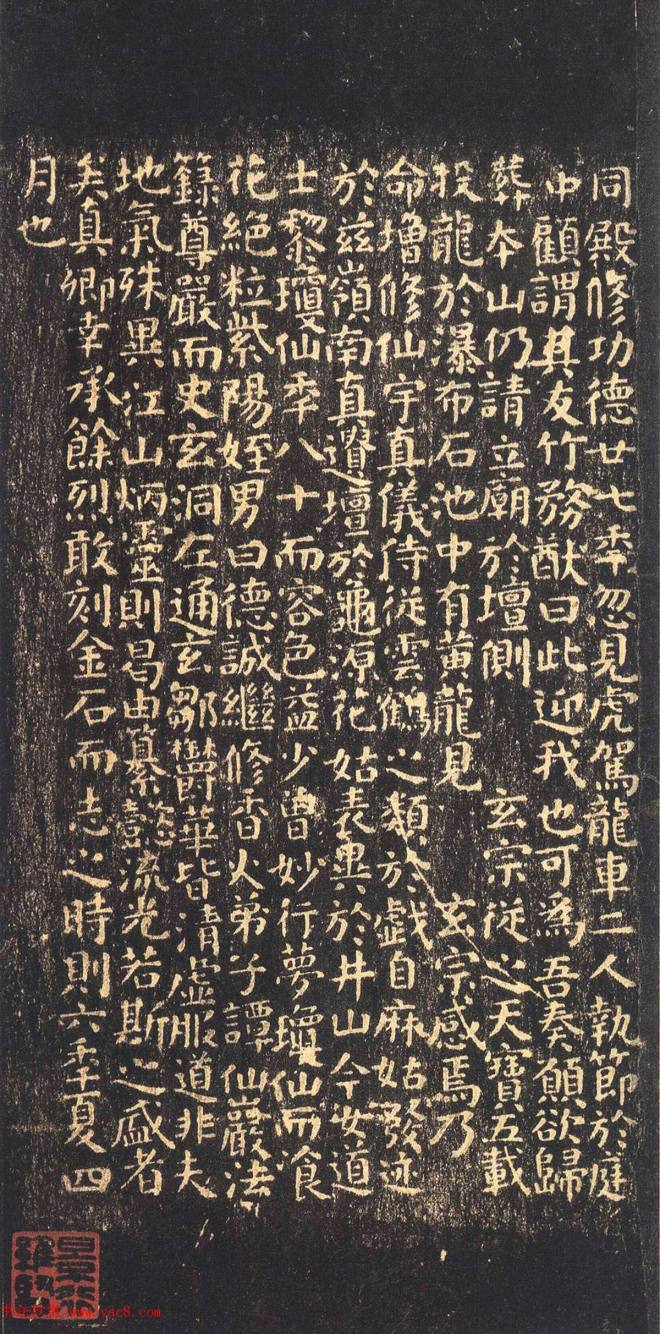 同殿修功德廿七秊忽見虎駕龍車二人執節於庭
中顧謂其友竹務猷曰此迎我也可爲吾奏願欲歸
葬本山仍請立廟於壇側 玄宗從之天寶五載
投龍於瀑布石池中有黃龍見 玄宗感焉乃
命增修仙宇真儀侍從雲鶴之類於戲自麻姑發迹
於茲嶺南真遺壇於龜源花姑表異於井山今女道
士黎瓊仙秊八十而容色益少曾妙行夢瓊仙而飡
花絕粒紫陽姪男曰德誠繼修香火弟子譚仙巖法
籙尊嚴而史玄洞左通玄鄒欝華皆清虛服道非夫
地氣殊異江山炳靈則曷由纂懿流光若斯之盛者
矣真卿幸承餘烈敢刻金石而志之時則六秊夏四
月也
www.yac8.com